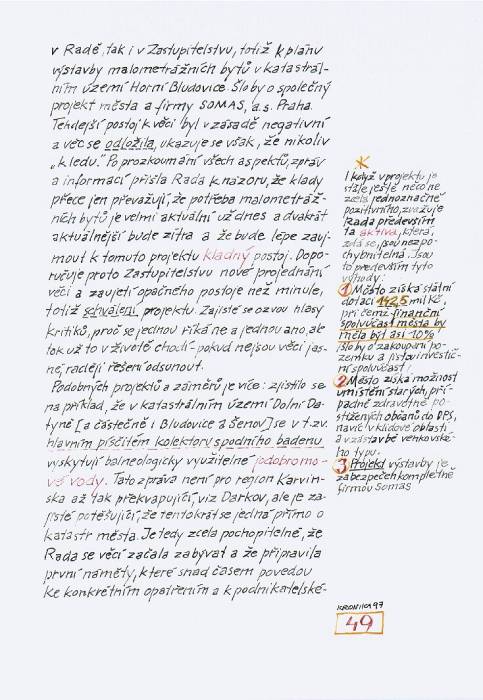 v Radě, tak i v Zastupitelstvu, totiž k plánu
výstavby malometrážních bytů v katastrál-
ním území Horní Bludovice. Šlo by o společný
projekt města a firmy SOMAS, a.s. Praha.
Tehdejší postoj k věci byl v zásadě negativní
a věc se odložila, ukazuje se však, že nikoliv
„k ledu." Po prozkoumání všech aspektů, zpráv
a informací přišla Rada k názoru, že klady
přece jen převažují, že potřeba malometráž-
ních bytů je velmi aktuální už dnes a dvakrát
aktuálnější bude zítra a že bude lépe zauj-
mout k tomuto projektu kladný postoj. Dopo-
ručuje proto Zastupitelstvu nové projednání
věci a zaujetí opačného postoje než minule,
totiž schválení projektu. Zajisté se ozvou hlasy
kritiků, proč se jednou říká ne a jednou ano, ale
tok už to v životě chodí - pokud nejsou věci jas-
né, raději řešení odsunout.
Podobných projektů a záměrů je více: zjistilo se
na příklad, že v katastrálním území Dolní Da-
tyně [a částečně i Bludovice a Šenov] se v t.zv.
hlavním písčitém kolektoru spodního badenu
vyskytují balneologicky využitelné jodobromo-
vé vody. Tato zpráva není pro region Karvin-
ska až tak překvapující, viz Darkov, ale je za-
jisté potěšující, že tentokrát se jedná přímo o
katastr města. Je tedy zcela pochopitelné, že
Rada se věcí začala zabývat a že připravila
první náměty, které snad časem povedou
ke konkrétním opatřením a k podnikatelské-
I když v projektu je
stále ještě něco ne
zcela jednoznačně
pozitivního, zvažuje
Rada především
ta aktiva, která,
zdá se, jsou nezpo-
chybnitelná. Jsou
to především tyto
výhody:
1 Město získá státní
dotaci 142,5 mil Kč,
při čemž finanční
spoluúčast města by
měla být asi 10%
šlo by o zakoupení po-
zemku a jistou investič-
ní spoluúčast
2 Město získá možnost
umístění starých, pří-
padně zdravotně po-
stižených občanů do DPS,
navíc v klidové oblasti
a v zástavbě venkovské-
ho typu.
3 Projekt výstavby je
zabezpečen kompletně
firmou Somas
KRONIKA 97
49